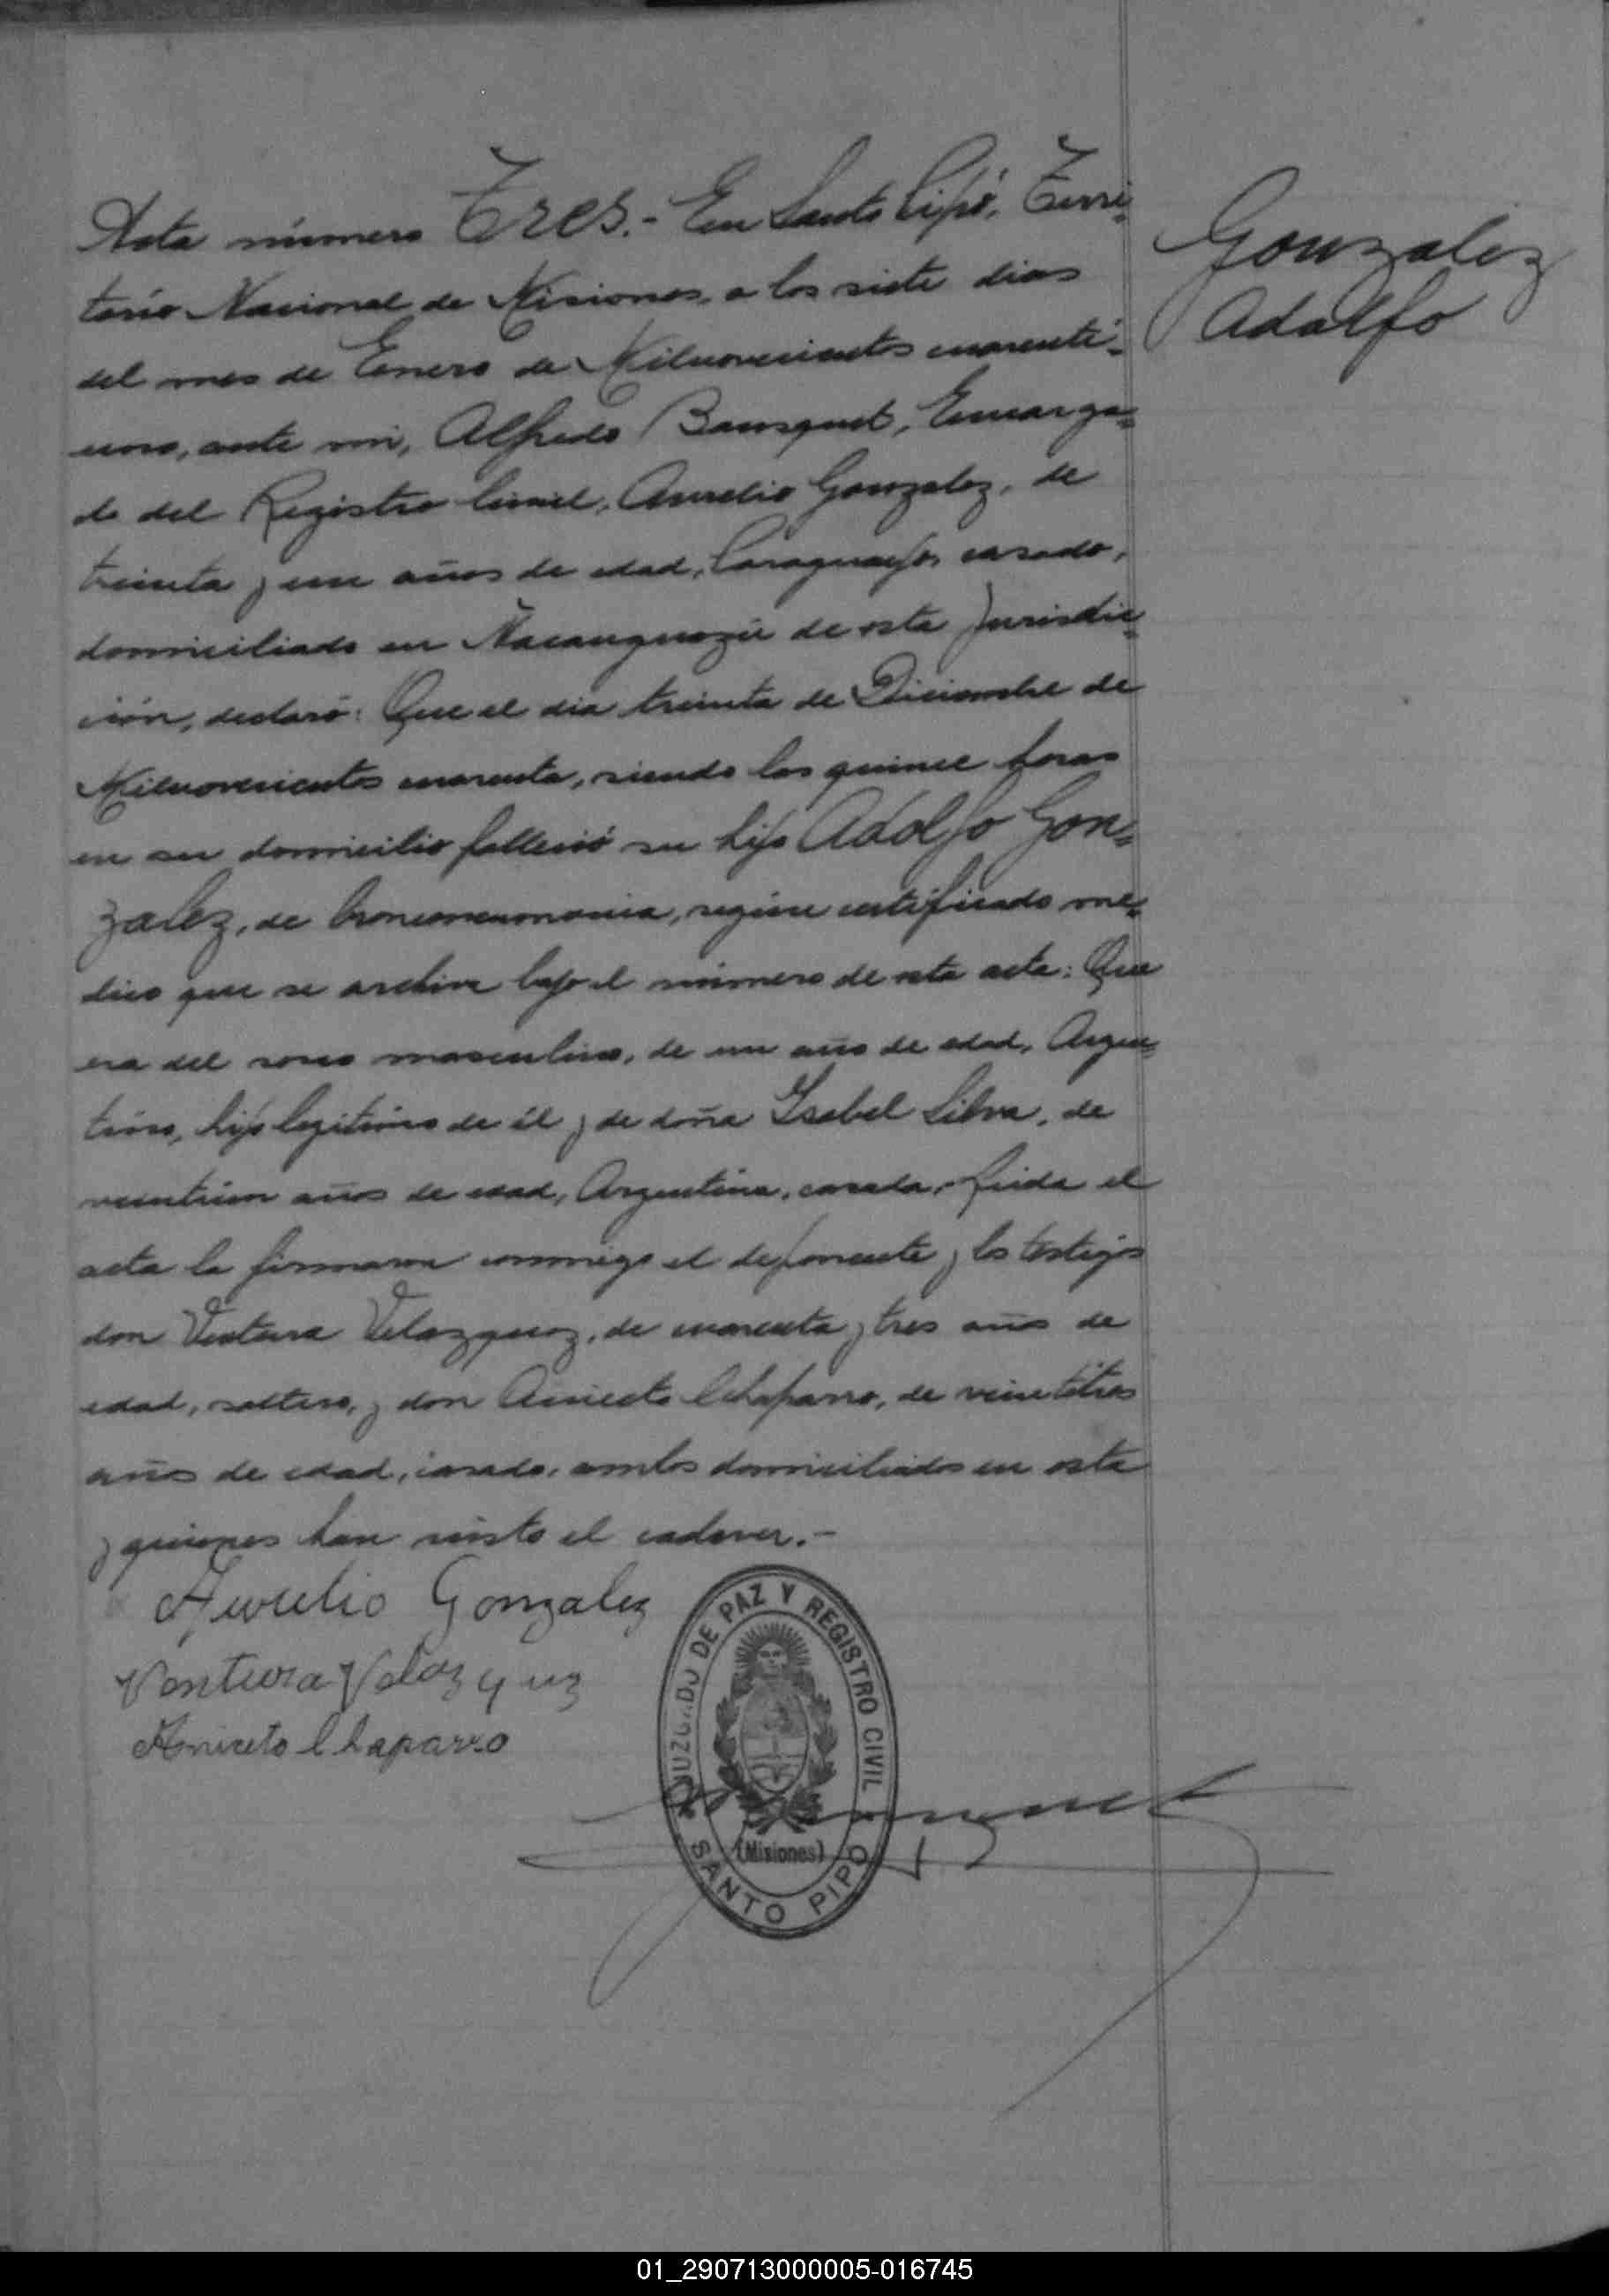 Acta número Tres.- En Santo Pipó, Terri-
torio Nacional de Misiones, a los siete dias
del mes de Enero de Milnovecientos cuarenti-
uno, ante mi, Alfredo Bousquet, Encarga-
do del Registro Civil, Aurelio Gonzalez, de
treinta y un años de edad, Paraguayo, casado,
domiciliado en Ñacanguazú de esta Jurisdic-
ción, declaró: Que el dia treinta de Diciembre de
Milnovecientos cuarenta, siendo las quince horas
en su domicilio falleció su hijo Adolfo Gon-
zalez, de bronconeumonia, según certificado me-
dico que se archiva bajo el número de esta acta: Que
era del sexo masculino, de un año de edad, Argen-
tino, hijo legitimo de él y de doña Isabel Silva, de
veintiun años de edad, Argentina, casada. Leida el
acta la firmaron conmigo el deponente y los testigos
don Ventura Velazquez, de cuarenta y tres años de
edad, soltero, y don Aniceto Chaparro, de veintitres
años de edad, casado, ambos domiciliados en esta
y quienes han visto el cadaver.-
Gonzalez
Adolfo
Aurelio Gonzalez
Ventura Velazquez
Aniceto Chaparro
JUZGADO DE PAZ Y REGISTRO CIVIL
(Misiones)
SANTO PIPO
01_290713000005-016745